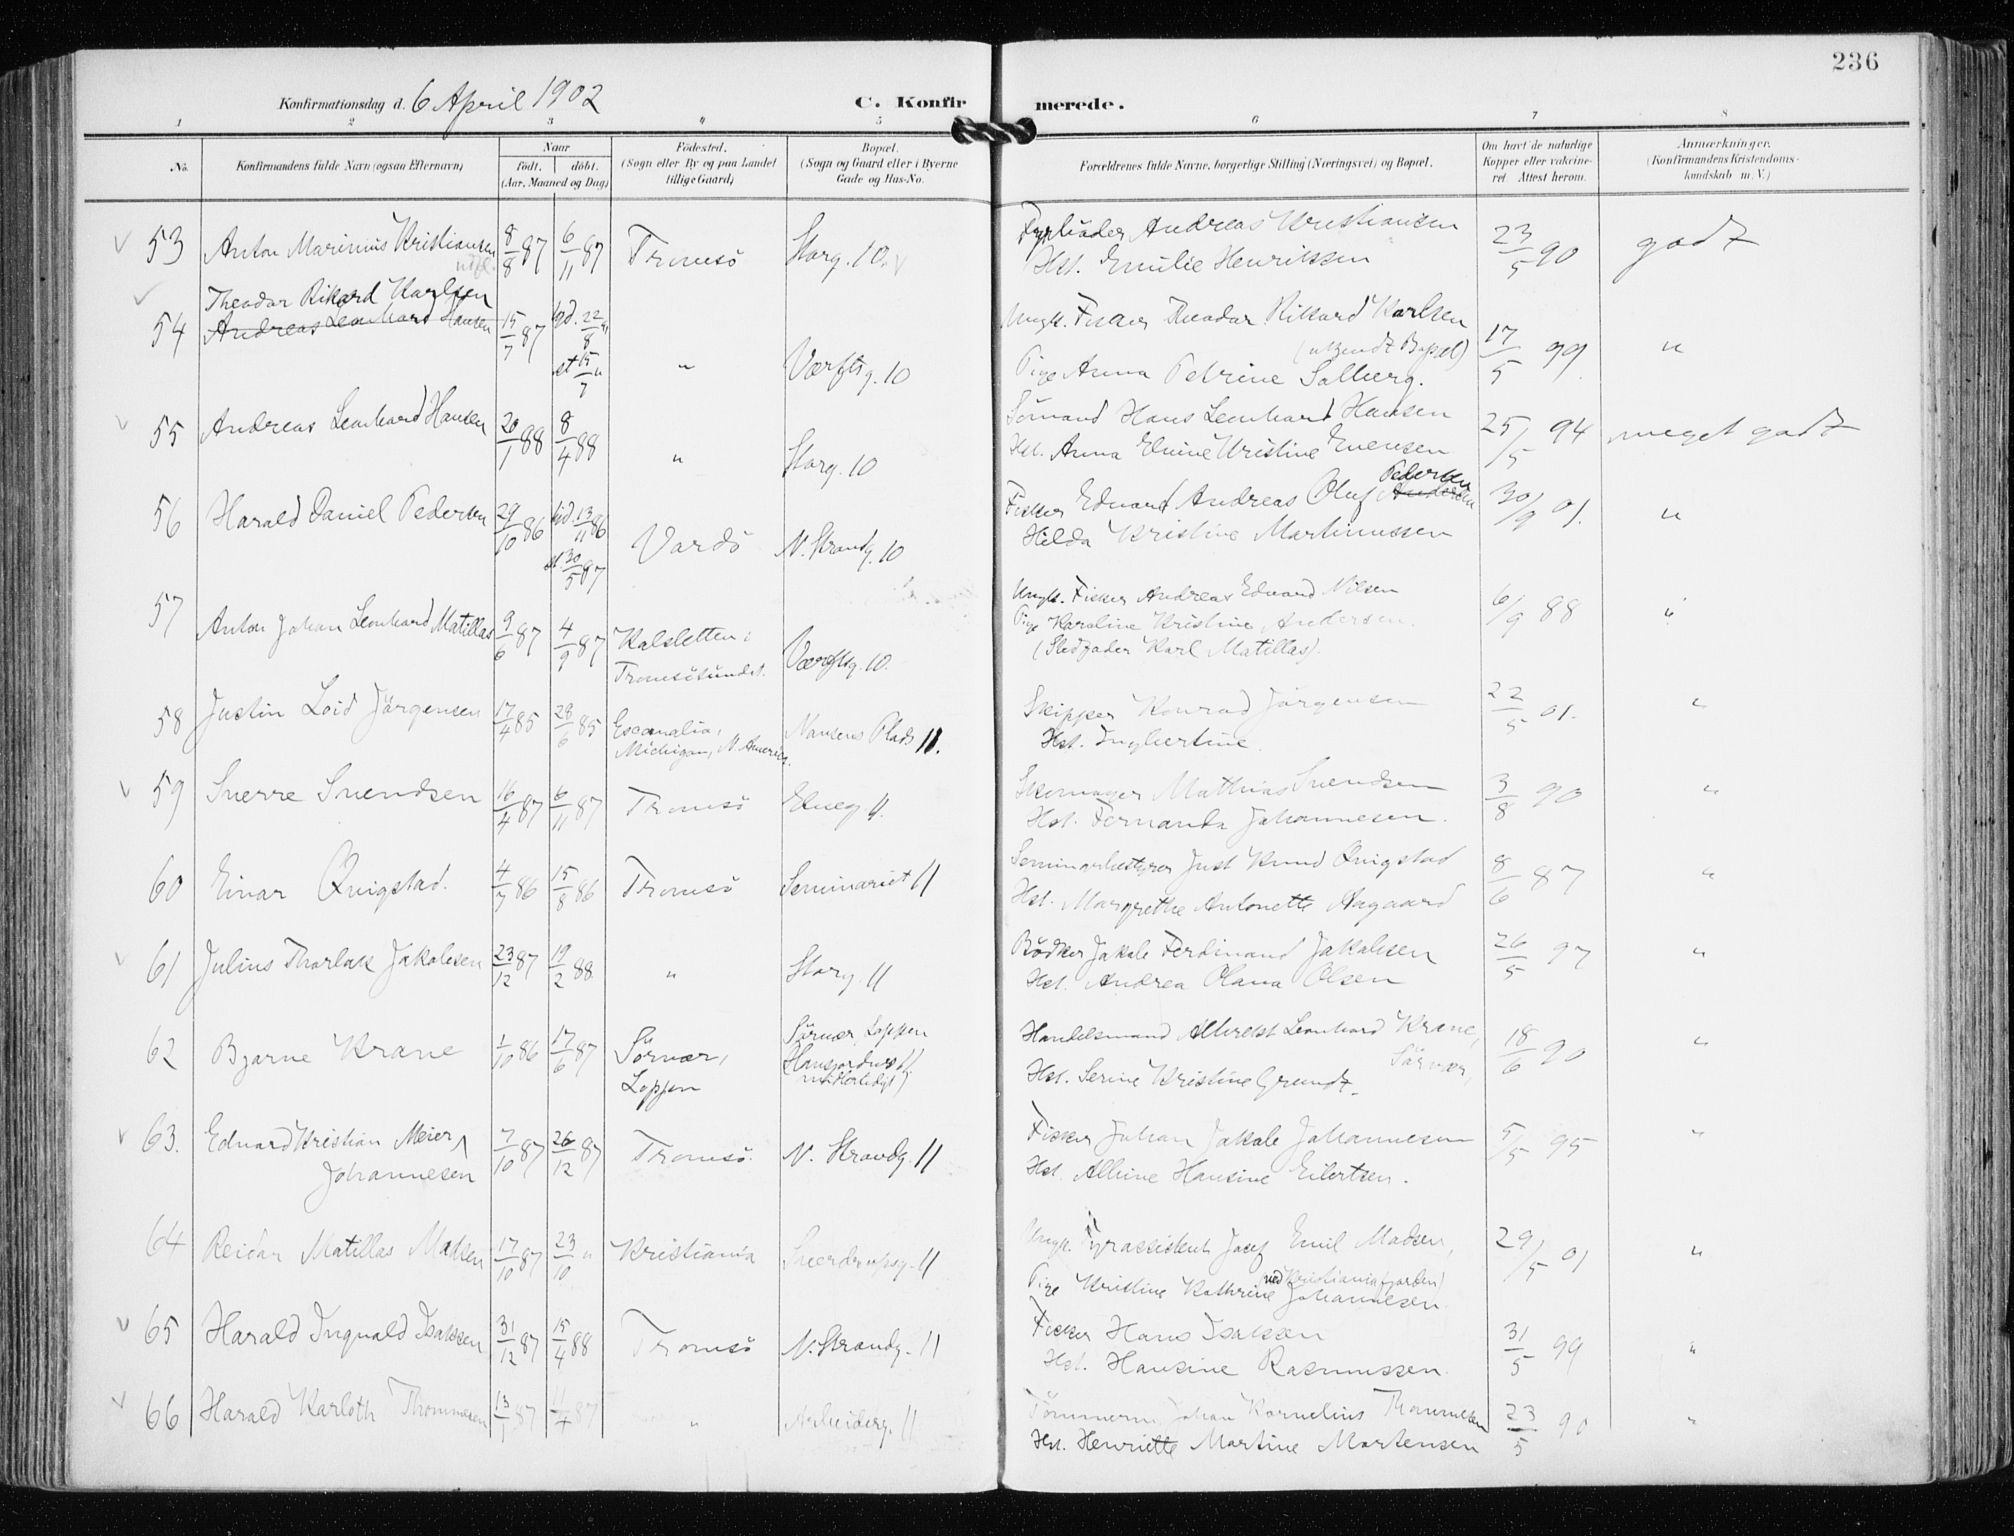 236
Konfirmationsdag d. 6 April 1902
C. Konfirmerede.
1 2 3 4 5 6 7 8
No. Konfirmandens fulde Navn (ogsaa Efternavn) Naar født, døbt. (Aar, Maaned og Dag) Fødested. (Sogn eller By og paa Landet tillige Gaard) Bopæl. (Sogn og Gaard eller i Byerne Gade og Hus-No. Forældrenes fulde Navne, borgerlige Stilling (Næringsvei) og Bopæl. Om havt de naturlige Kopper eller vakcineret. Attest herom. Anmærkninger. (Konfirmandens Kristendomskundskab m. V.)
53 Anton Marinius Kristiansen 8/8 87 6/11 87 Tromsö Storg. 10. Andreas Kristiansen 23/5 90 godt
Hst. Emilie Henriksen
Theodor Rikard Karlsen
54 Andreas Leonhard Hansen 15/7 87 hjd. 22/8 " Ungk. Fisker Theodor Rikard Karlsen 17/5 99 "
st 15/7 " " Værftsg. 10 (ukjendt Bopæl)
Pige Anna Petrine Solberg.
55 Andreas Leonhard Hansen 20/1 88 8/4 88 " Storg. 10 Sömand Hans Leonhard Hansen 25/5 94 meget godt
Hst. Anna Kristine Evensen
56 Harald Daniel Pedersen 29/10 86 hjd. 13/11 86 Vardö N. Strandg. 10 Fisker Edvard Andreas Oluf Andersen Pedersen 30/9 01. "
st. 30/5 87 Hilda Kristine Martinussen
57 Anton Johan Leonhard Matillas 9/6 87 4/9 87 Kalsletten i Værftsg. 10. Ungk. Fisker Andreas Edvard Nilsen 6/9 88 "
Tromsösundet. Pige Karoline Kristine Andersen.
(Stedfader Karl Matillas).
58 Justin Loid Jörgensen 17/4 85 28/6 85 Escanalia, Nansens Plads 11. Skipper Konrad Jörgensen 22/5 01. "
Michigan, N. Amerika. Hst. Ingbertine.
59 Sverre Svendsen 16/4 87 6/11 87 Tromsö Elveg 11. Skomager Mathias Svendsen 3/8 90 "
Hst. Fernanda Johannesen.
60 Einar Qvigstad. 4/7 86 15/8 86 Tromsö Seminariet 11 Seminarbestyrer Just Knud Qvigstad 8/6 87 "
Hst. Margrethe Antonette Aagaard
61 Julius Thorlak Jakobsen 23/12 87 19/2 88 " Storg. 11 Bödker Jakob Ferdinand Jakobsen 26/5 97 "
Hst. Andrea Olava Olsen
62 Bjarne Krane 1/10 86 17/6 87 Sörvær, Loppen Sörvær, Loppen Handelsmand Albrekt Leonhard Krane, 18/6 90 "
Sörvær,
Hst. Serine Kristine Grundt.
63. Edvard Kristian Meier Johannesen 7/10 87 26/12 87 Tromsö. N. Strandg. 11 Fisker Johan Jakob Johannesen 5/5 95 "
Hst. Albine Hansine Eilertsen.
64 Reidar Matillas Madsen 17/10 87 23/10 " Kristiania Sverdrupsg. 11 Ungk. Fyrassistent Josef Emil Madsen, 29/5 01 "
(ved Kristianiafjorden)
Pige Kristine Kathrine Johannesen.
65 Harald Ingvald Isaksen 31/12 87 15/4 88 Tromsö N. Strandg. 11 Fisker Hans Isaksen 31/5 99 "
Hst. Hansine Rasmussen.
66 Harald Karloth Thommesen 13/1 87 11/4 87 " Arbeiderg. 11 Tömmerm. Johan Kornelius Thommesen 23/5 90 "
Hst. Henriette Martine Mortensen